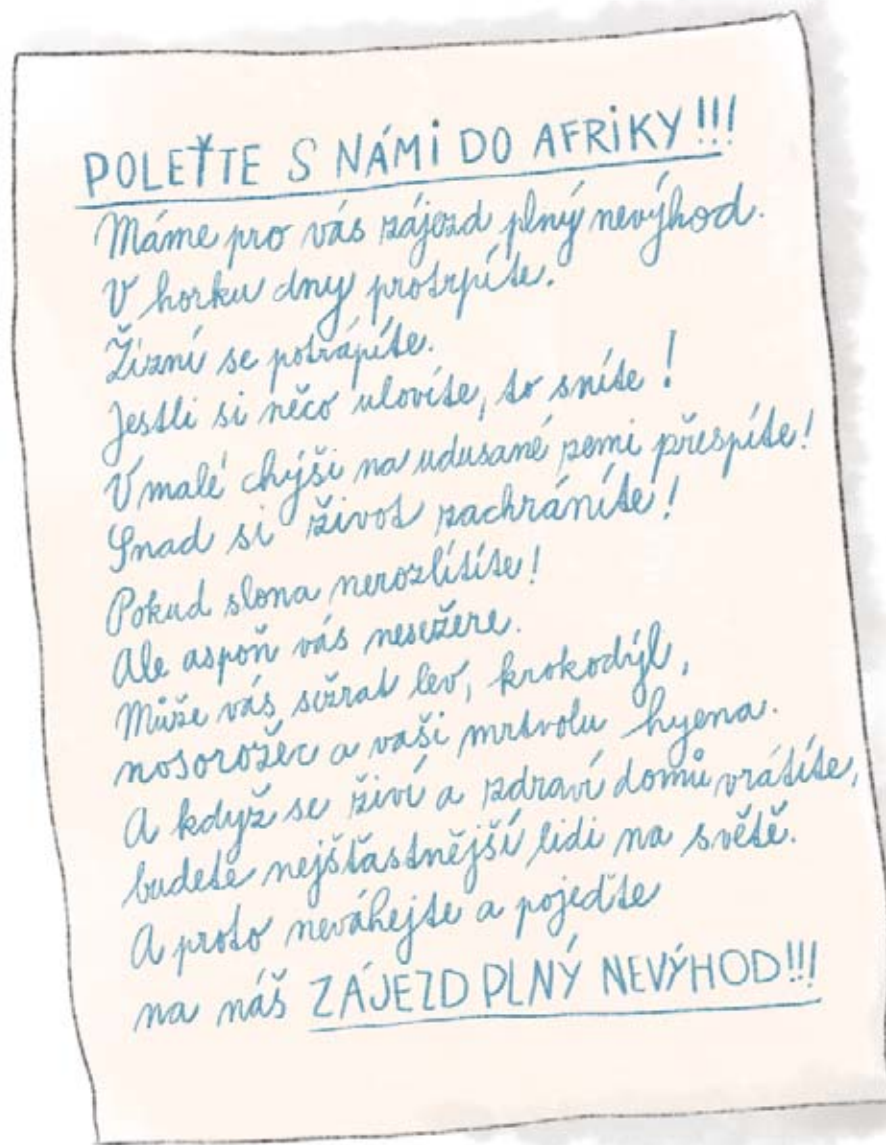 POLEŤTE S NÁMI DO AFRIKY!!!
Máme pro vás zájezd plný nevýhod.
V horku dny protrpíte.
Žízní se potrápíte.
Jestli si něco ulovíte, to sníte!
V malé chýši na udusané zemi přespíte!
Snad si život zachráníte!
Pokud slona nerozlítíte!
Ale aspoň vás nesežere.
Může vás sežrat lev, krokodýl,
nosorožec a vaši mrtvolu hyena.
A když se živí a zdraví domů vrátíte,
budete nejšťastnější lidi na světě.
A proto neváhejte a pojeďte
na náš ZÁJEZD PLNÝ NEVÝHOD!!!